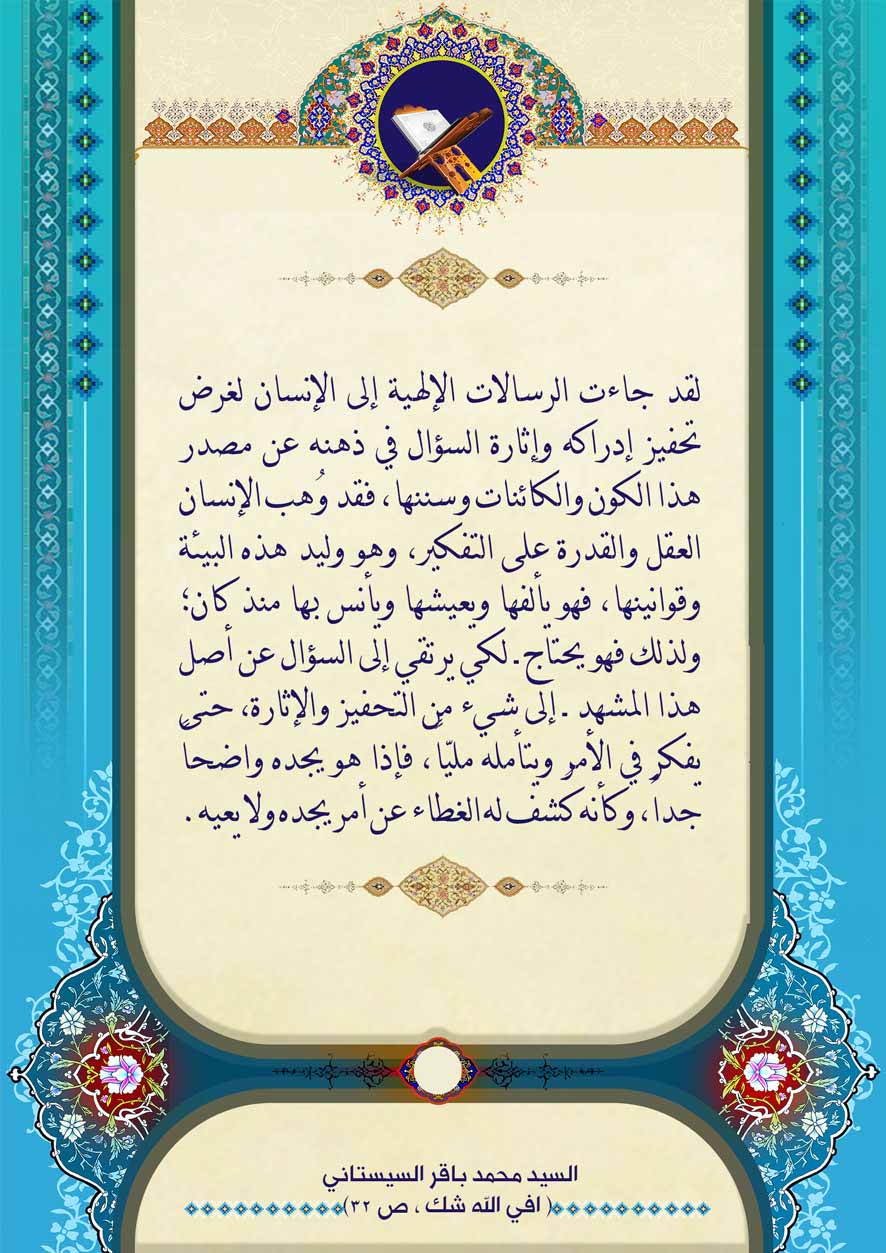 لقد جاءت الرسالات الإلهية إلى الإنسان لغرض
تحفيز إدراكه وإثارة السؤال في ذهنه عن مصدر
هذا الكون والكائنات وسننها، فقد وُهب الإنسان
العقل والقدرة على التفكير، وهو وليد هذه البيئة
وقوانينها، فهو يألفها ويعيشها ويأنس بها منذ كان؛
ولذلك فهو يحتاج ـ لكي يرتقي إلى السؤال عن أصل
هذا المشهد ـ إلى شيء من التحفيز والإثارة، حتى
يفكر في الأمر ويتأمله مليّاً، فإذا هو يجده واضحاً
جداً، وكأنه كشف له الغطاء عن أمر يجده ولا يعيه.
السيد محمد باقر السيستاني
( افي الله شك ، ص ٣٢)